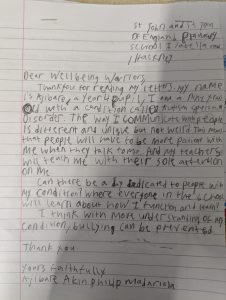 St John and St James
Of England Primary
School Isabella road
Hackney
Dear Wellbeing Warriors
Thankyou for reading my letter. My name
is Ajibare a year 4 pupil, I am a
old with a condition called Autism Spectrum
Disorder. The way I communicate with people
is different and unique but not weird This means
that people will have to be more patient with
me when they talk to me. And not teachers
will teach me with their sole attention
on me
Can there be a day dedicated to people with
my condition? where everyone in the school
will learn about how I function and learn?
I think with more understanding of my
condition, bullying can be prevented.
Thank you
Yours faithfully
Ajibare Akinphilip Madariola